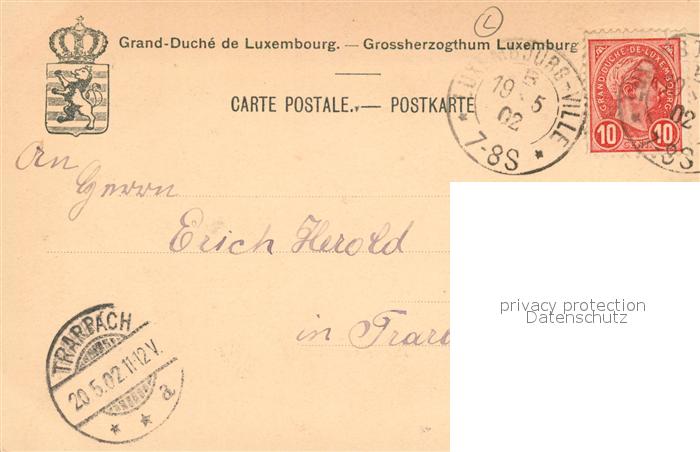 L
Grand-Duché de Luxembourg. — Grossherzogthum Luxemburg
CARTE POSTALE. — POSTKARTE
LUXEMBOURG-VILLE
19 5
02
7-8S
GRAND-DUCHÉ-DE-LUXEMBOURG
10 10
02
An
Herrn
Erich Herold
in
privacy protection
Datenschutz
TRARBACH
20.5.02.11-12V.
* * a